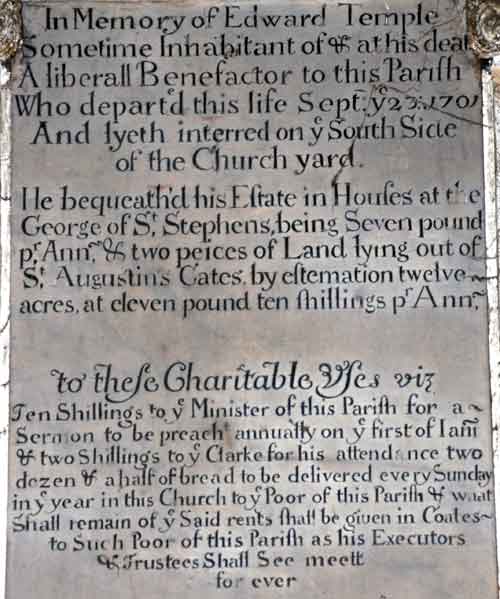 In Memory of Edward Temple
Sometime Inhabitant of & at his deat
A liberall Benefactor to this Pariſh
Who depart'd this life Sept: yͤ 23: 1701
And lyeth interred on yͤ South Side
of the Church yard.
He bequeath'd his Eſtate in Houſes at the
George of Sᵗ. Stephens, being Seven pound
pʳ. Annᵐ. & two peices of Land lying out of
Sᵗ. Augustins Gates, by estemation twelve
acres, at eleven pound ten ſhillings pʳ Annᵐ.
to theſe Charitable Uſes viz
Ten Shillings to yͤ Minister of this Pariſh for a
Sermon to be preachᵗ annually on yͤ first of Ianʳⁱ
& two Shillings to yͤ Clarke for his attendance two
dozen & a half of bread to be delivered every Sunday
in yͤ year in this Church to yͤ Poor of this Pariſh & what
Shall remain of yͤ Said rents ſhall be given in Coates
to Such Poor of this Pariſh as his Executors
& Trustees Shall See meett
for ever